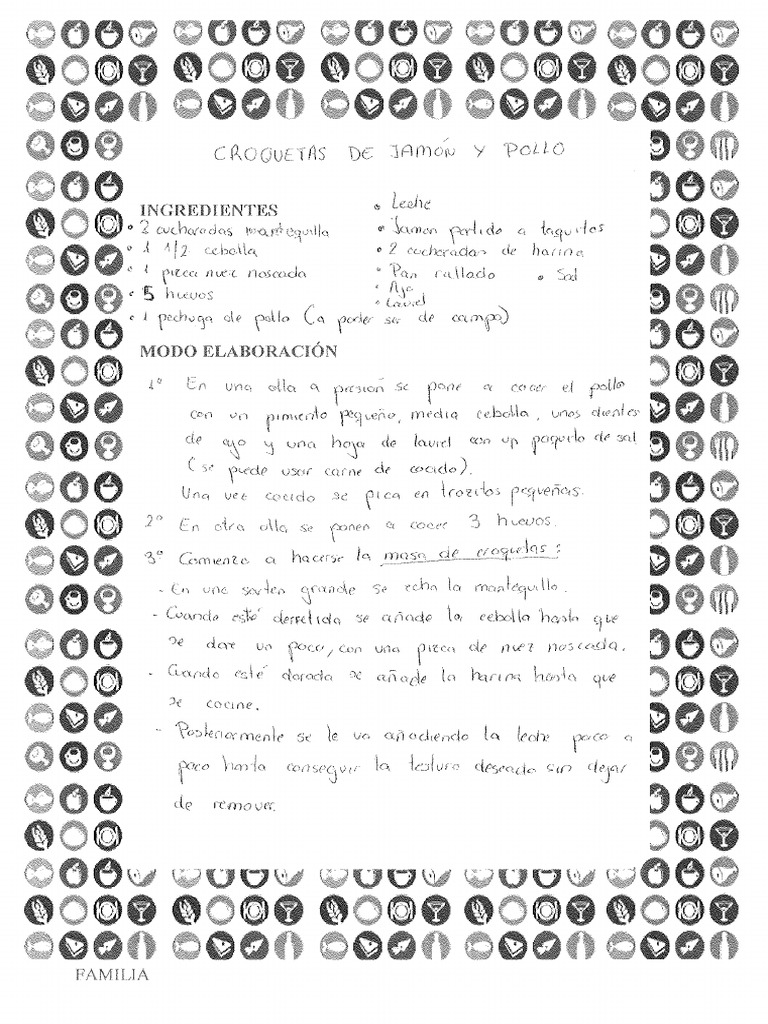 CROQUETAS DE JAMÓN Y POLLO
INGREDIENTES
• 2 cucharadas mantequilla
• 1 1/2 cebolla
• 1 pizca nuez noscada
• 5 huevos
• 1 pechuga de pollo (a poder ser de campo)
• Leche
• Jamón partido a taquitos
• 2 cucharadas de harina
• Pan rallado • Sal
• Ajo
• Laurel
MODO ELABORACIÓN
1º En una olla a presión se pone a cocer el pollo
con un pimiento pequeño, media cebolla, unos dientes
de ajo y una hoja de laurel con un poquito de sal
(se puede usar carne de cocido).
Una vez cocido se pica en trozitos pequeños.
2º En otra olla se ponen a cocer 3 huevos.
3º Comienza a hacerse la masa de croquetas:
- En una sarten grande se echa la mantequilla.
- Cuando esté derretida se añade la cebolla hasta que
se dore un poco, con una pizca de nuez noscada.
- Cuando esté dorada se añade la harina hasta que
se cocine.
- Posteriormente se le va añadiendo la leche poco a
poco hasta conseguir la textura deseada sin dejar
de remover.
FAMILIA